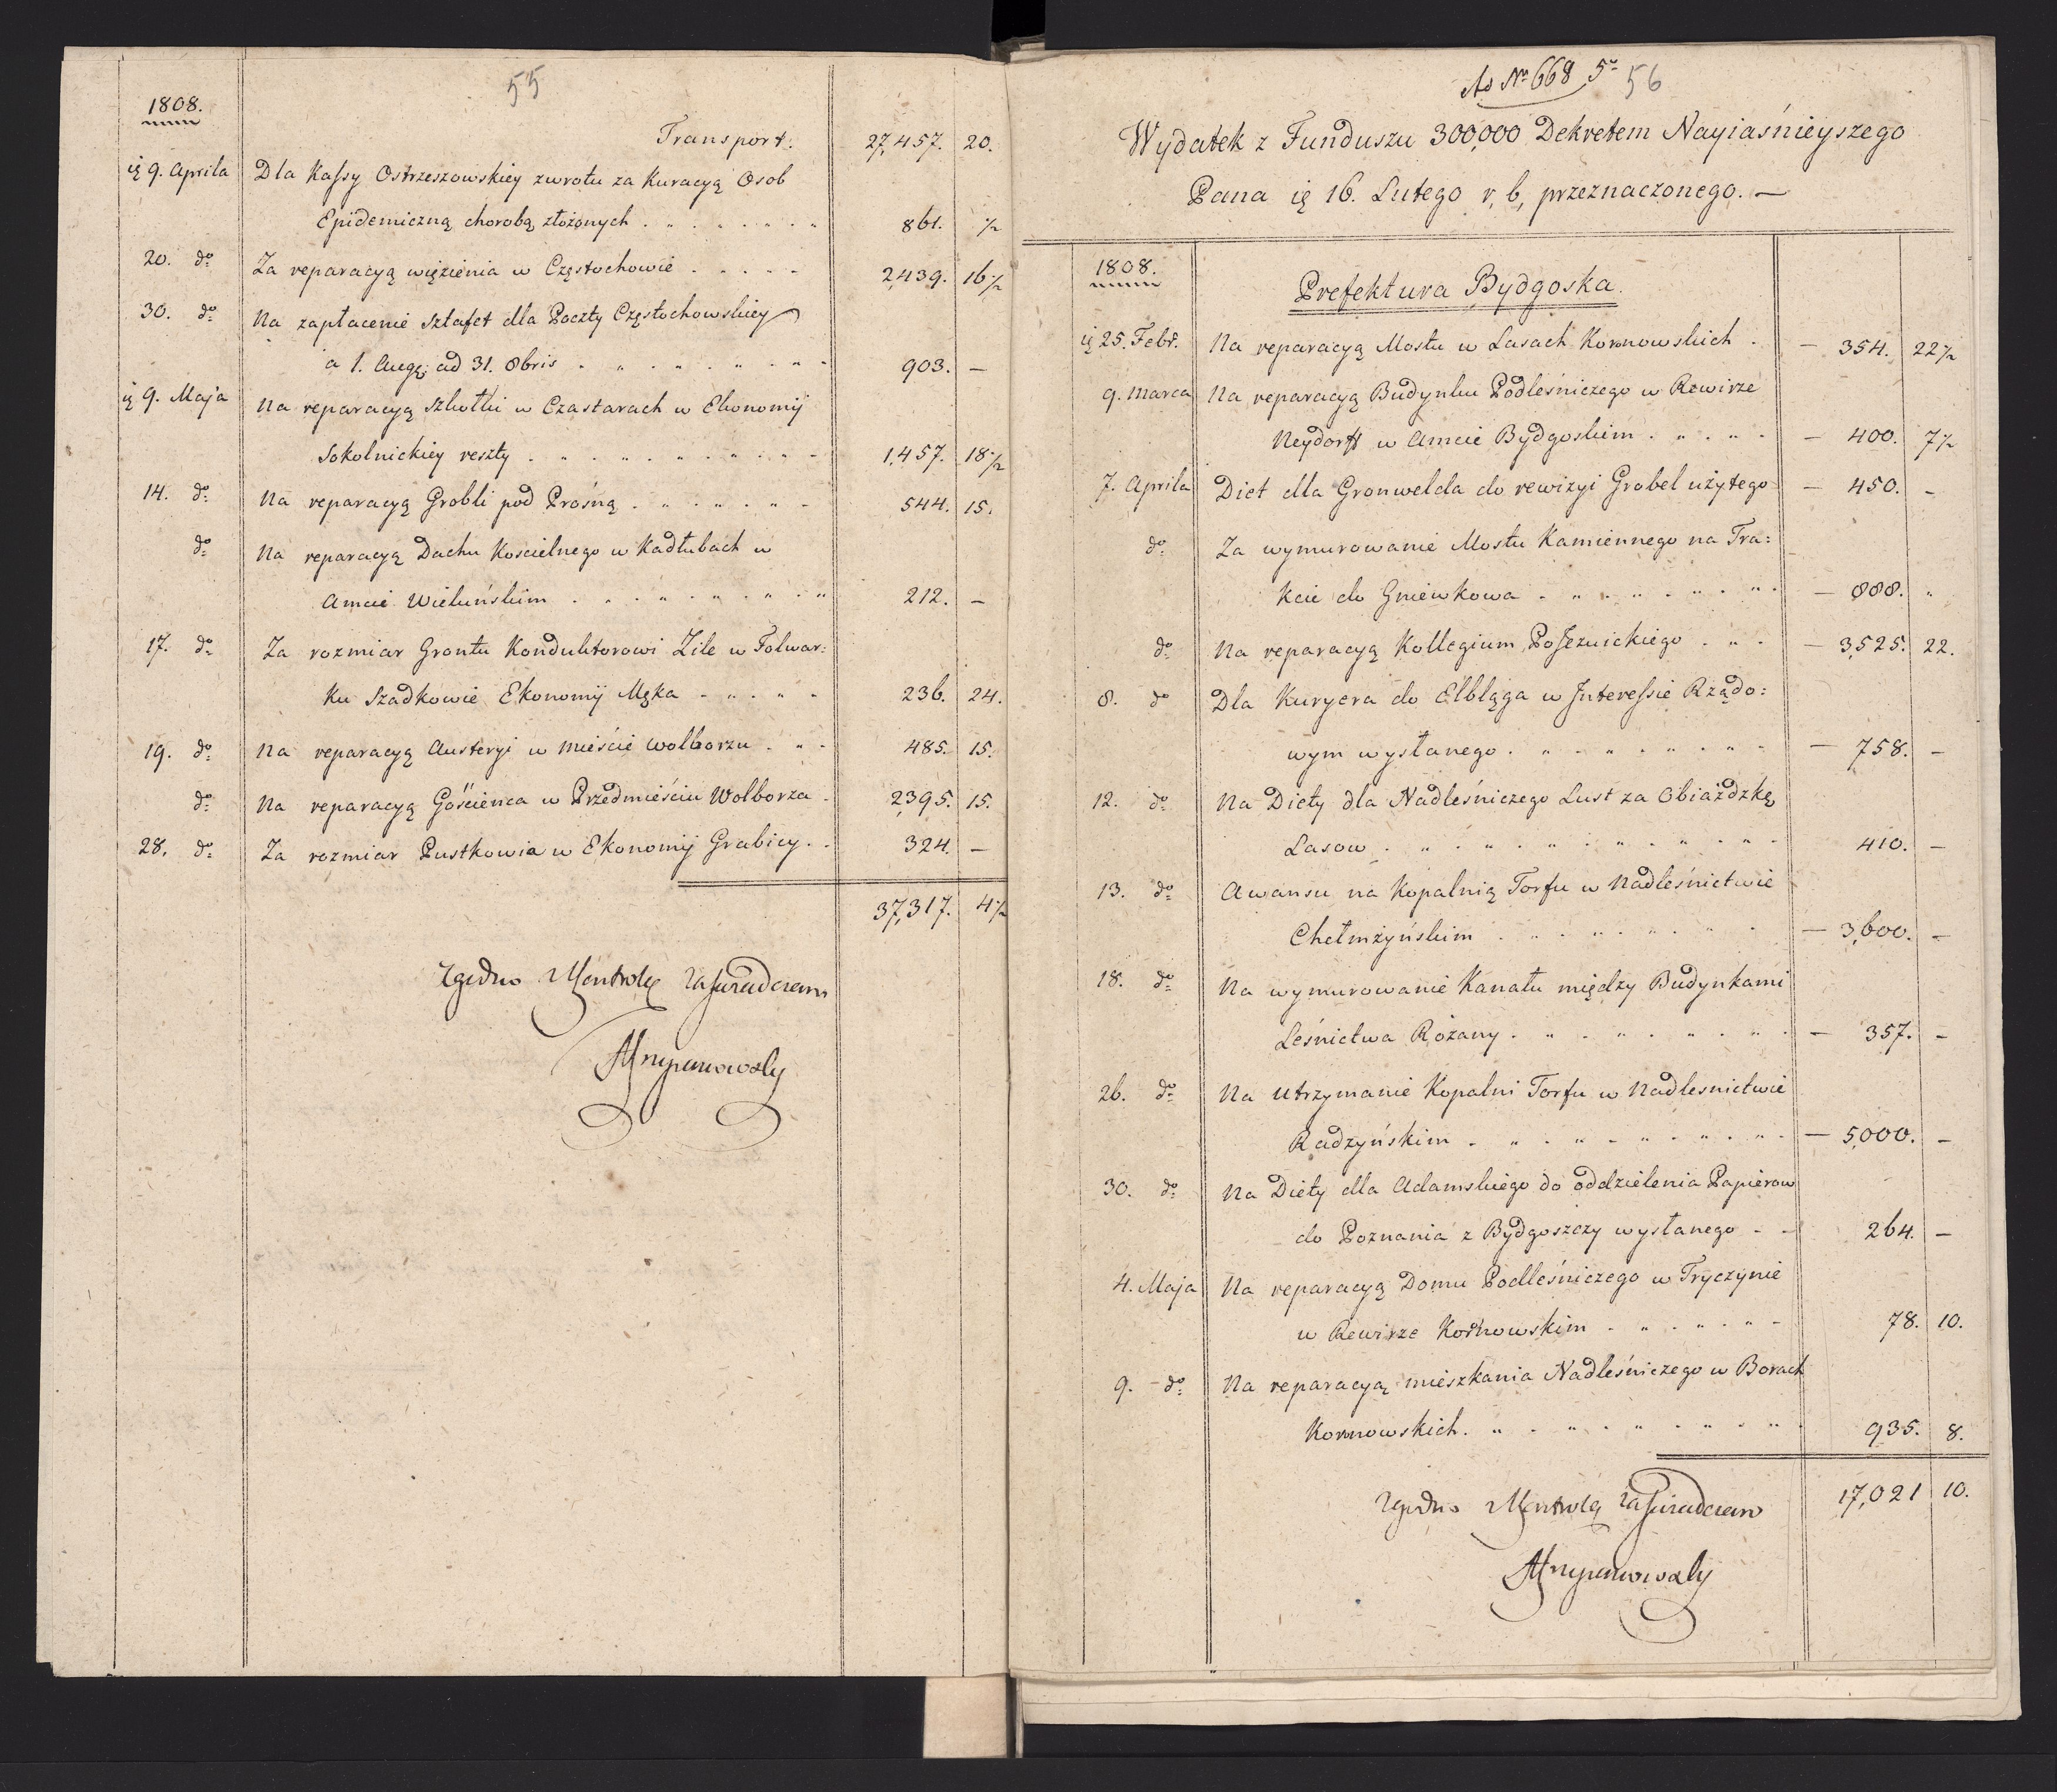 55
1808.
Transport. 27,457. 20.
ię 9. Aprila Dla Kassy Ostrzeszowskiey zwrotu za Kuracyą Osob
Epidemiczną chorobą złożonych 861. ½
20. do Za reparacyą więzienia w Częstochowie 2,439. 16½
30. do Na zapłacenie Sztafet dla Poczty Częstochowskiey
a 1. Aug: ad 31. 8bris 903. —
ię 9. Maja Na reparacyą Szkołki w Czastarach w Ekonomij
Sokolnickiey reszty 1,457. 18½
14. do Na reparacyą Grobli pod Prosną 544. 15.
do Na reparacyą Dachu Koscielnego w Kadłubach w
Amcie Wieluńskim 212. —
17. do Za rozmiar Grontu Konduktorowi Zile w Folwar:
ku Szadkowie Ekonomij Męka 236. 24.
19. do Na reparacyą Austeryi w mieście Wolborzu 485. 15.
do Na reparacyą Gościenca w Przedmieściu Wolborza 2,395. 15.
28. do Za rozmiar Pustkowia w Ekonomij Grabicy 324. —
37,317. 4½
Zgodno z Kontrolą zaświadczam
Ad No 668 5o 56
Wydatek z Funduszu 300,000 Dekretem Nayiaśnieyszego
Pana ię 16. Lutego r, b, przeznaczonego. —
1808. Prefektura Bydgoska.
ię 25. Febr. Na reparacyą Mostu w Lasach Koronowskich — 354. 22½
9. Marca Na reparacyą Budynku Podleśniczego w Rewirze
Neydorff w Amcie Bydgoskim — 400. 7½
7. Aprila Diet dla Gronwelda do rewizyi Grobel użytego — 450. -
do Za wymurowanie Mostu Kamiennego na Tra:
kcie do Gniewkowa — 888. "
do Na reparacyą Kollegium PoJezuickiego — 3,525. 22.
8. do Dla Kuryera do Elbląga w Interessie Rządo:
wym wysłanego — 758. —
12. do Na Diety dla Nadleśniczego Lust za Obiażdzkę
Lasow 410. —
13. do Awansu na Kopalnią Torfu w Nadleśnictwie
Chełmżyńskim — 3,600. —
18. do Na wymurowanie Kanału między Budynkami
Leśnictwa Rożany — 357. —
26. do Na utrzymanie Kopalni Torfu w Nadlesnictwie
Radzyńskim — 5,000. —
30. do Na Diety dla Adamskiego do oddzielenia Papierow
do Poznania z Bydgoszczy wysłanego 264. —
4. Maja Na reparacyą Domu Podleśniczego w Tryczynie
w Rewirze Kornowskim 78. 10.
9. do Na reparacyą mieszkania Nadleśniczego w Borach
Koronowskich 935. 8.
17,021 10.
Zgodno z Kontrolą zaświadczam